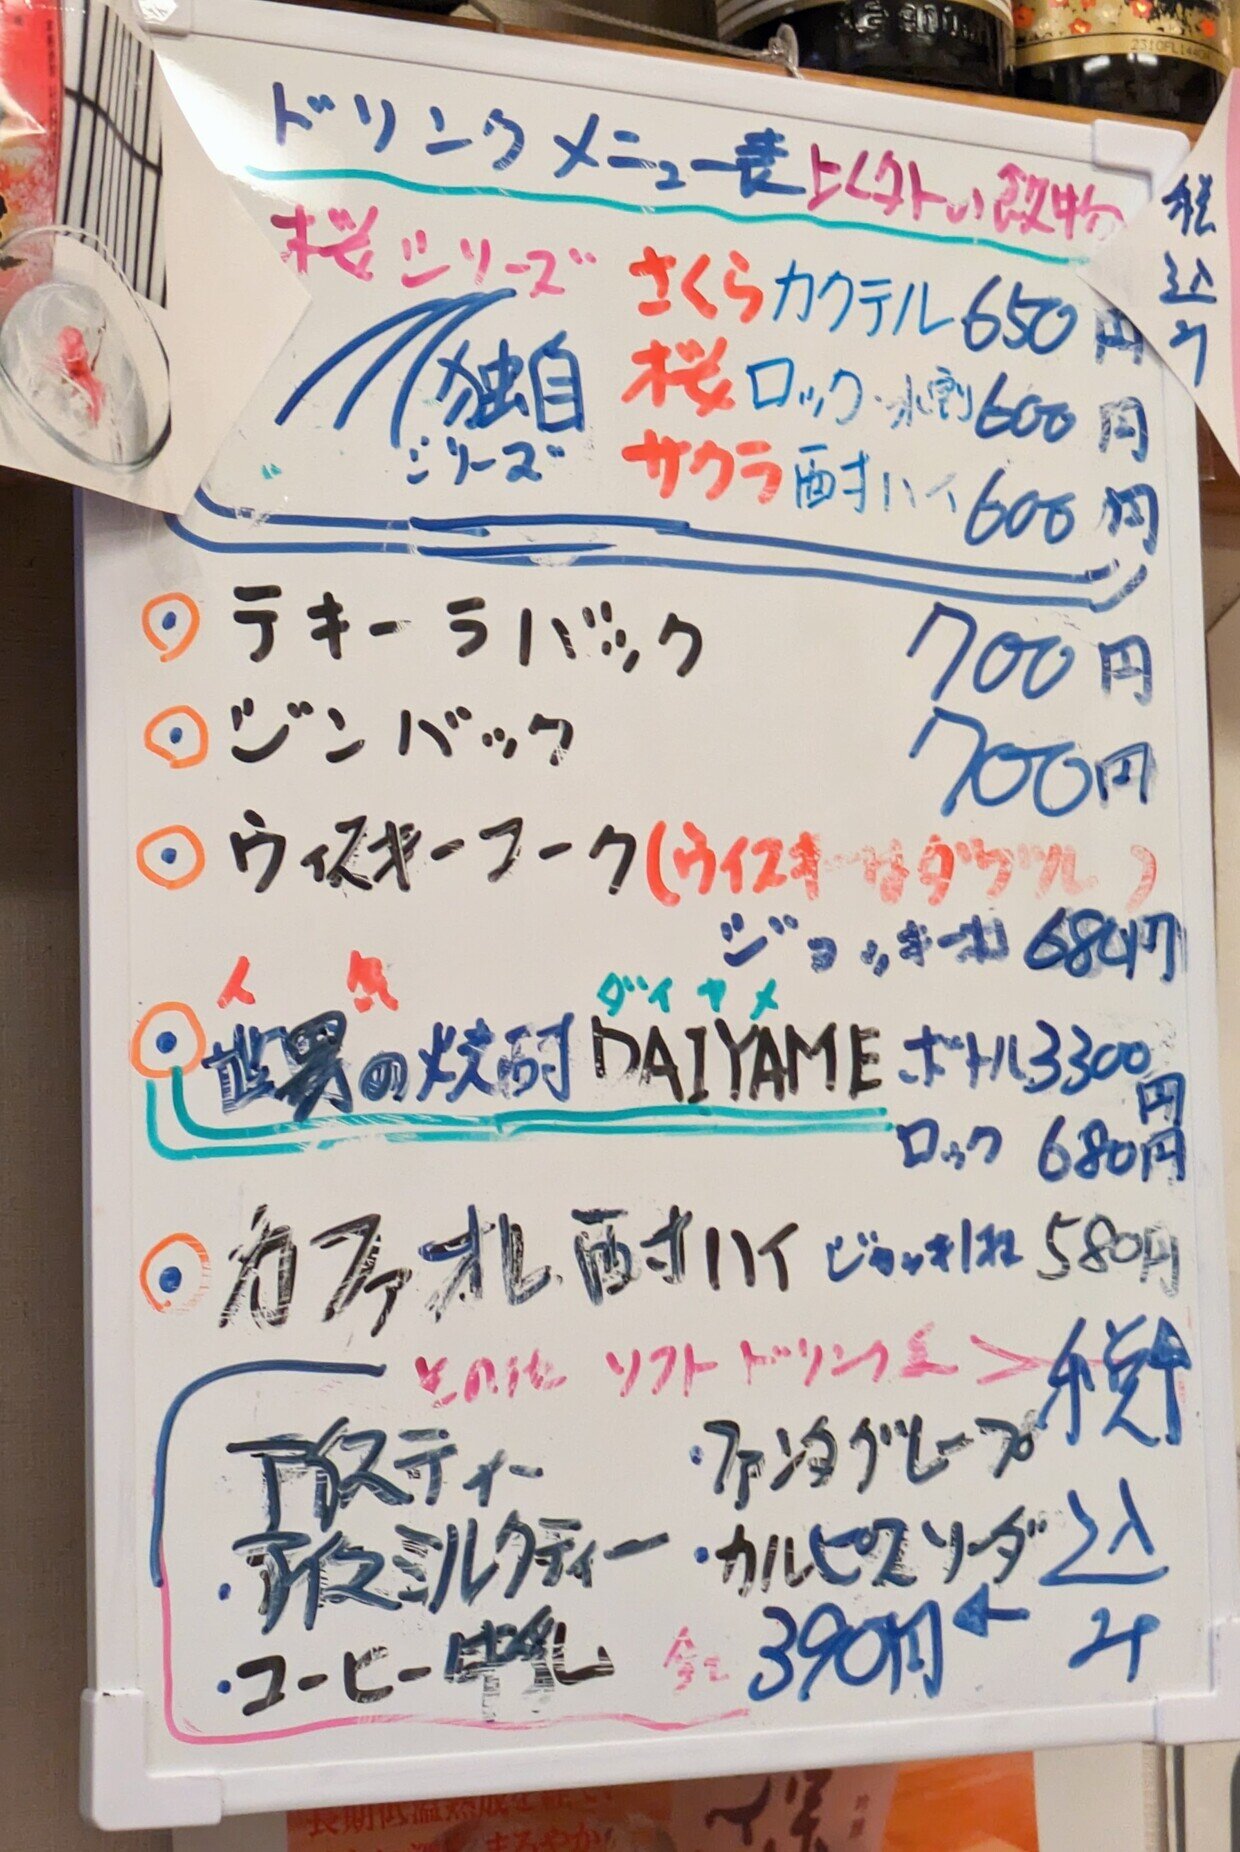 ドリンクメニュー表
税込み
桜シリーズ
独自
シリーズ
さくらカクテル 650円
桜ロック・水割 600円
サクラ酎ハイ 600円
テキーラバック 700円
ジンバック 700円
ウィスキーコーク(ウイスキーはダブル)
ジョッキー 680円
人気
の焼酎 DAIYAME ボトル 3300円
ダイヤメ
ロック 680円
カファオレ酎ハイ 580円
その他 ソフトドリンク
アイスティー
・アイスミルクティー
・コーヒー牛乳
・ファンタグレープ
・カルピスソーダ
全て 390円
税込み
2310FL144
長期低温熟成を経て、
まろやか